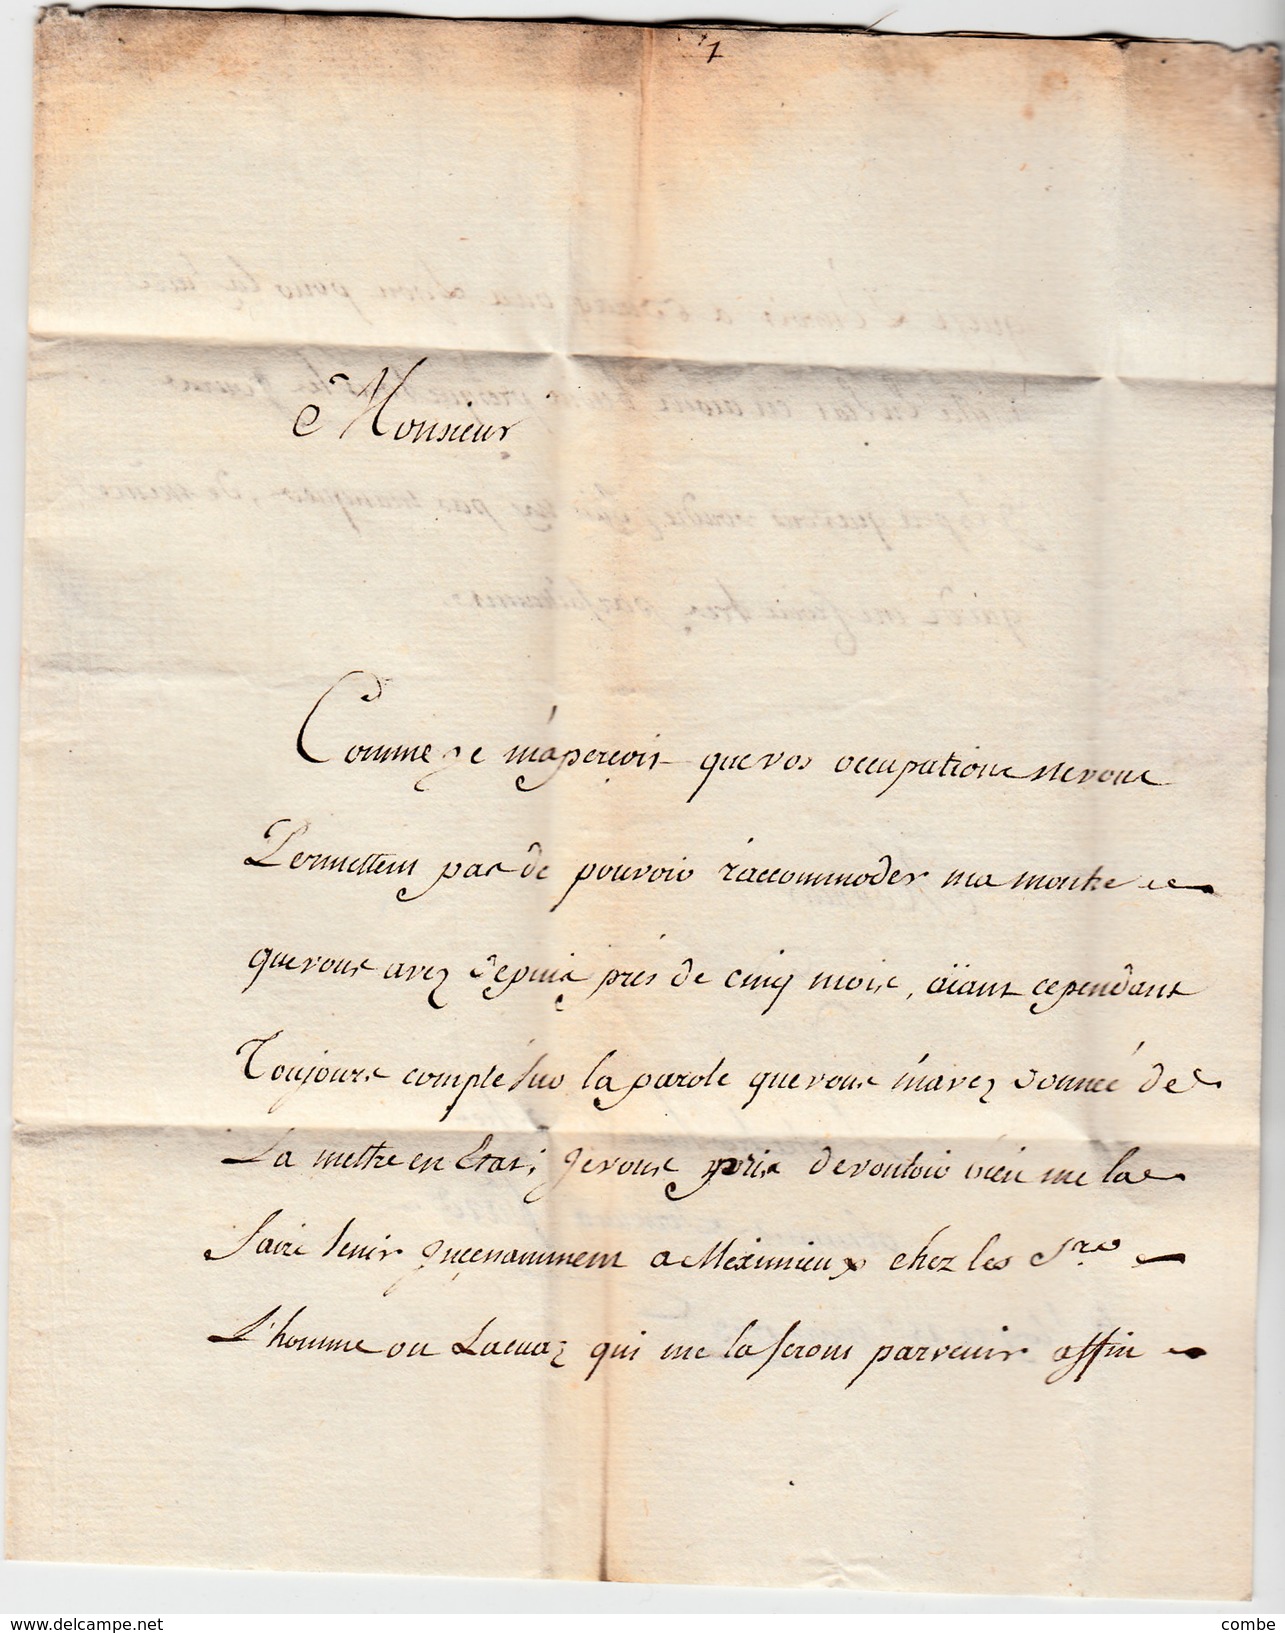 1
Monsieur
Comme je m'aperçois que vos occupations ne vous
Permettent pas de pouvoir raccommoder ma montre
que vous avez depuis près de cinq mois, aïant cependant
Toujours compté sur la parole que vous m'avez donnée de
La mettre en Etat; je vous prie de vouloir bien me la
faire tenir a Meximieux chez les Srs
L'homme ou Lacuaz qui me la feront parvenir affin
delcampe.net
combe